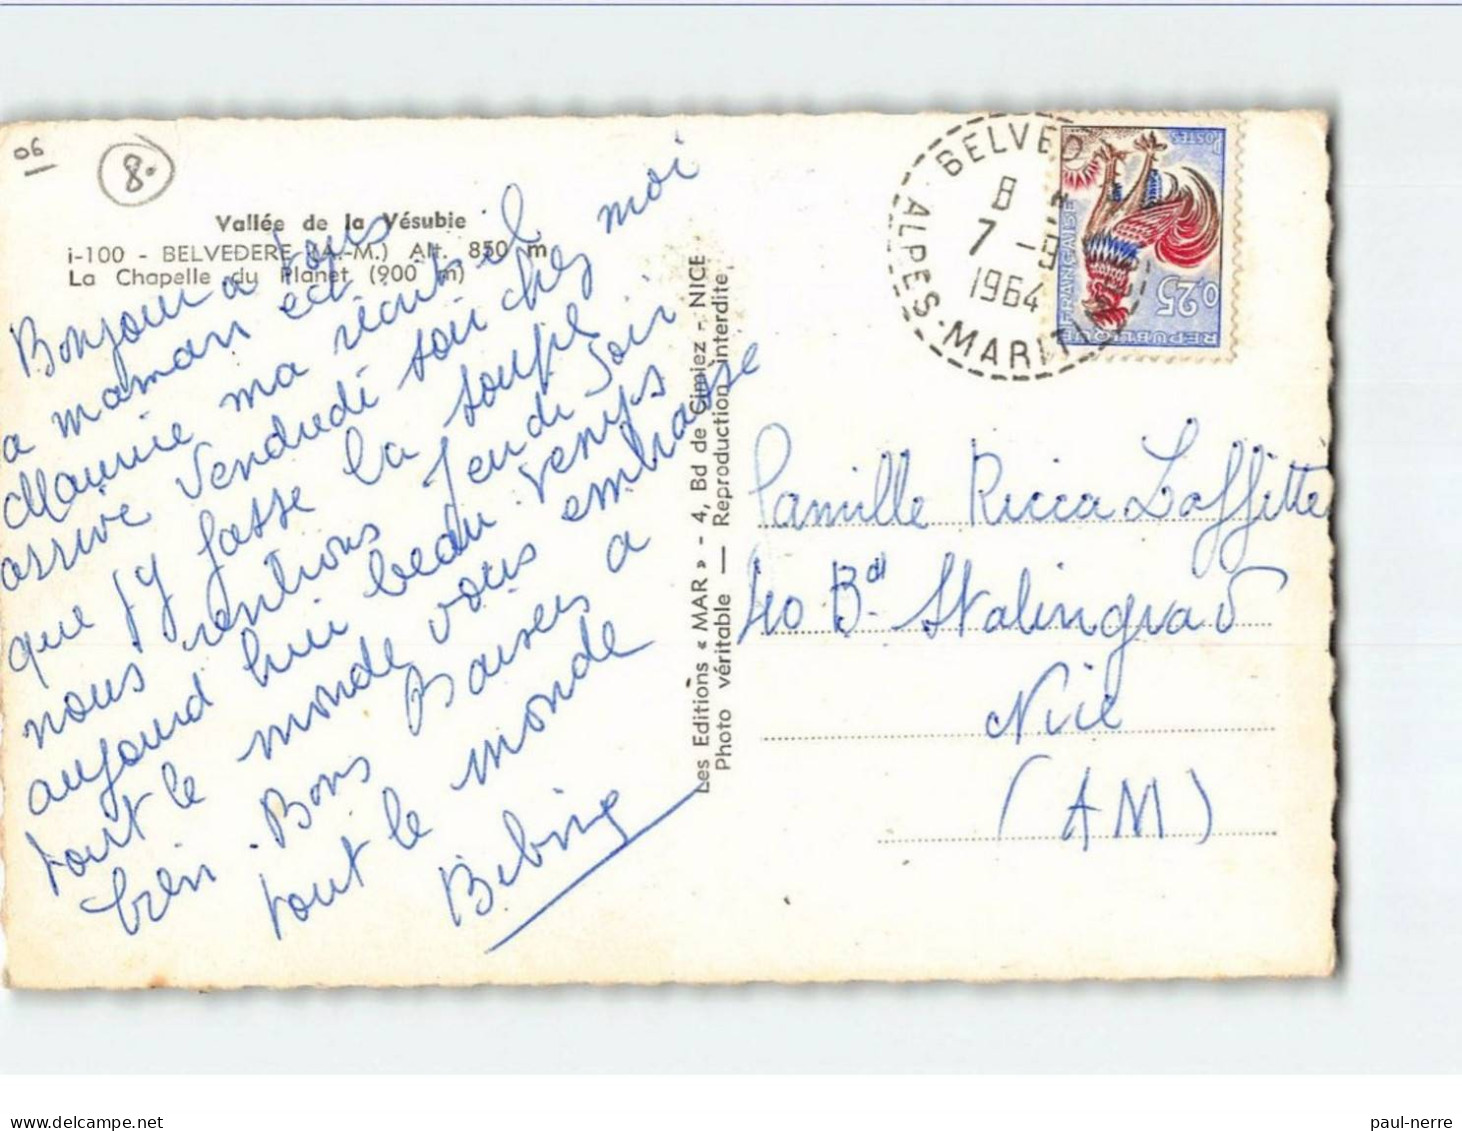 06
8.
Vallée de la Vésubie
i-100 - BELVEDERE (A.-M.) Alt. 850 m
La Chapelle du Planet (900 m)
Bonjour a tous
a maman est
Maurice ma récrit il
arrive Vendredi soir chez moi
que j'y fasse la soupe
nous rentrons Jeudi Soir
aujourd'hui beau temps
tout le monde vous embrasse
bien. Bons Baisers a
tout le monde
Bebing
Les Editions « MAR » - 4, Bd de Cimiez - NICE
Photo véritable — Reproduction interdite
BELVED
8
7 -9
1964
ALPES-MARIT
POSTES
REPUBLIQUE FRANÇAISE
0,25
Famille Ricca Laffitte
40 Bd Stalingrad
Nice
(AM)
paul-nerre